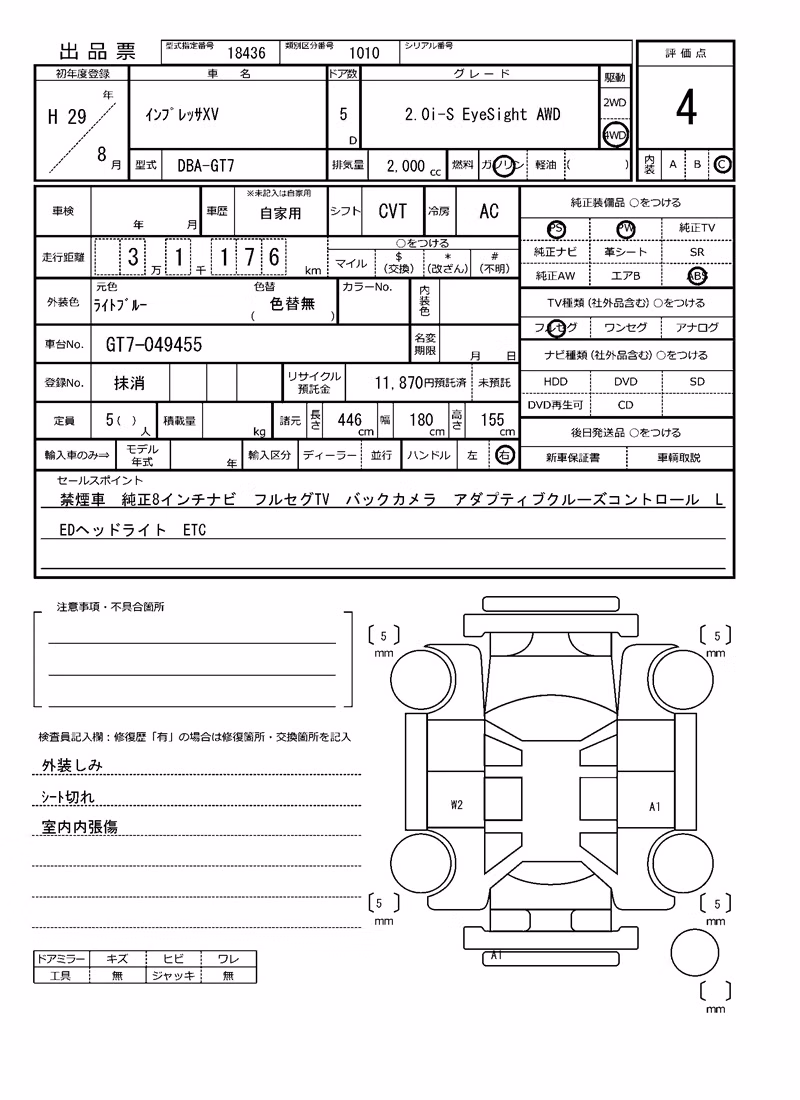 出品票 型式指定番号 18436 類別区分番号 1010 シリアル番号
評価点
4
内装 A B C
初年度登録 車名 ドア数 グレード 駆動
H 29 年 8 月 インプレッサXV 5 D 2.0i-S EyeSight AWD 2WD 4WD
型式 DBA-GT7 排気量 2,000 cc 燃料 ガソリン 軽油 ( )
車検 年 月 車歴 ※未記入は自家用 自家用 シフト CVT 冷房 AC
走行距離 3 万 1 千 1 7 6 km
○をつける
マイル $(交換) *(改ざん) #(不明)
外装色 元色 ライトブルー 色替 ( 色替無 ) カラーNo. 内装色
車台No. GT7-049455 名変期限 月 日
登録No. 抹消 リサイクル預託金 11,870円預託済 未預託
定員 5( )人 積載量 kg 諸元 長さ 446cm 幅 180cm 高さ 155cm
輸入車のみ⇒ モデル年式 年 輸入区分 ディーラー 並行 ハンドル 左 右
純正装備品 ○をつける
PS PW 純正TV
純正ナビ 革シート SR
純正AW エアB ABS
TV種類(社外品含む)○をつける
フルセグ ワンセグ アナログ
ナビ種類(社外品含む)○をつける
HDD DVD SD
DVD再生可 CD
後日発送品 ○をつける
新車保証書 車輌取説
セールスポイント
禁煙車 純正8インチナビ フルセグTV バックカメラ アダプティブクルーズコントロール L
EDヘッドライト ETC
注意事項・不具合箇所
検査員記入欄:修復歴「有」の場合は修復箇所・交換箇所を記入
外装しみ
シート切れ
室内内張傷
ドアミラー キズ ヒビ ワレ
工具 無 ジャッキ 無
〔 5 〕 〔 5 〕
mm mm
W2 A1
〔 5 〕 〔 5 〕
mm mm
A1
〔 〕
mm